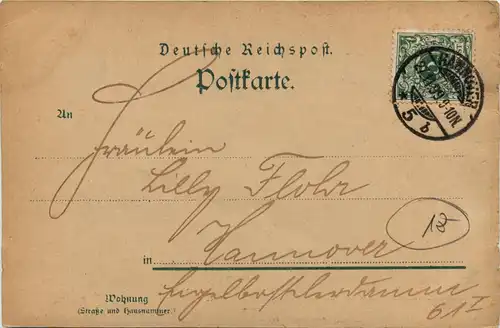 Deutsche Reichspost.
Postkarte.
HANNOVER
8-10N.
* 5 b
An
Fräulein
Lilly Flohr
in Hannover
18
Wohnung
(Straße und Hausnummer)
Engelbostelerdamm
61 I